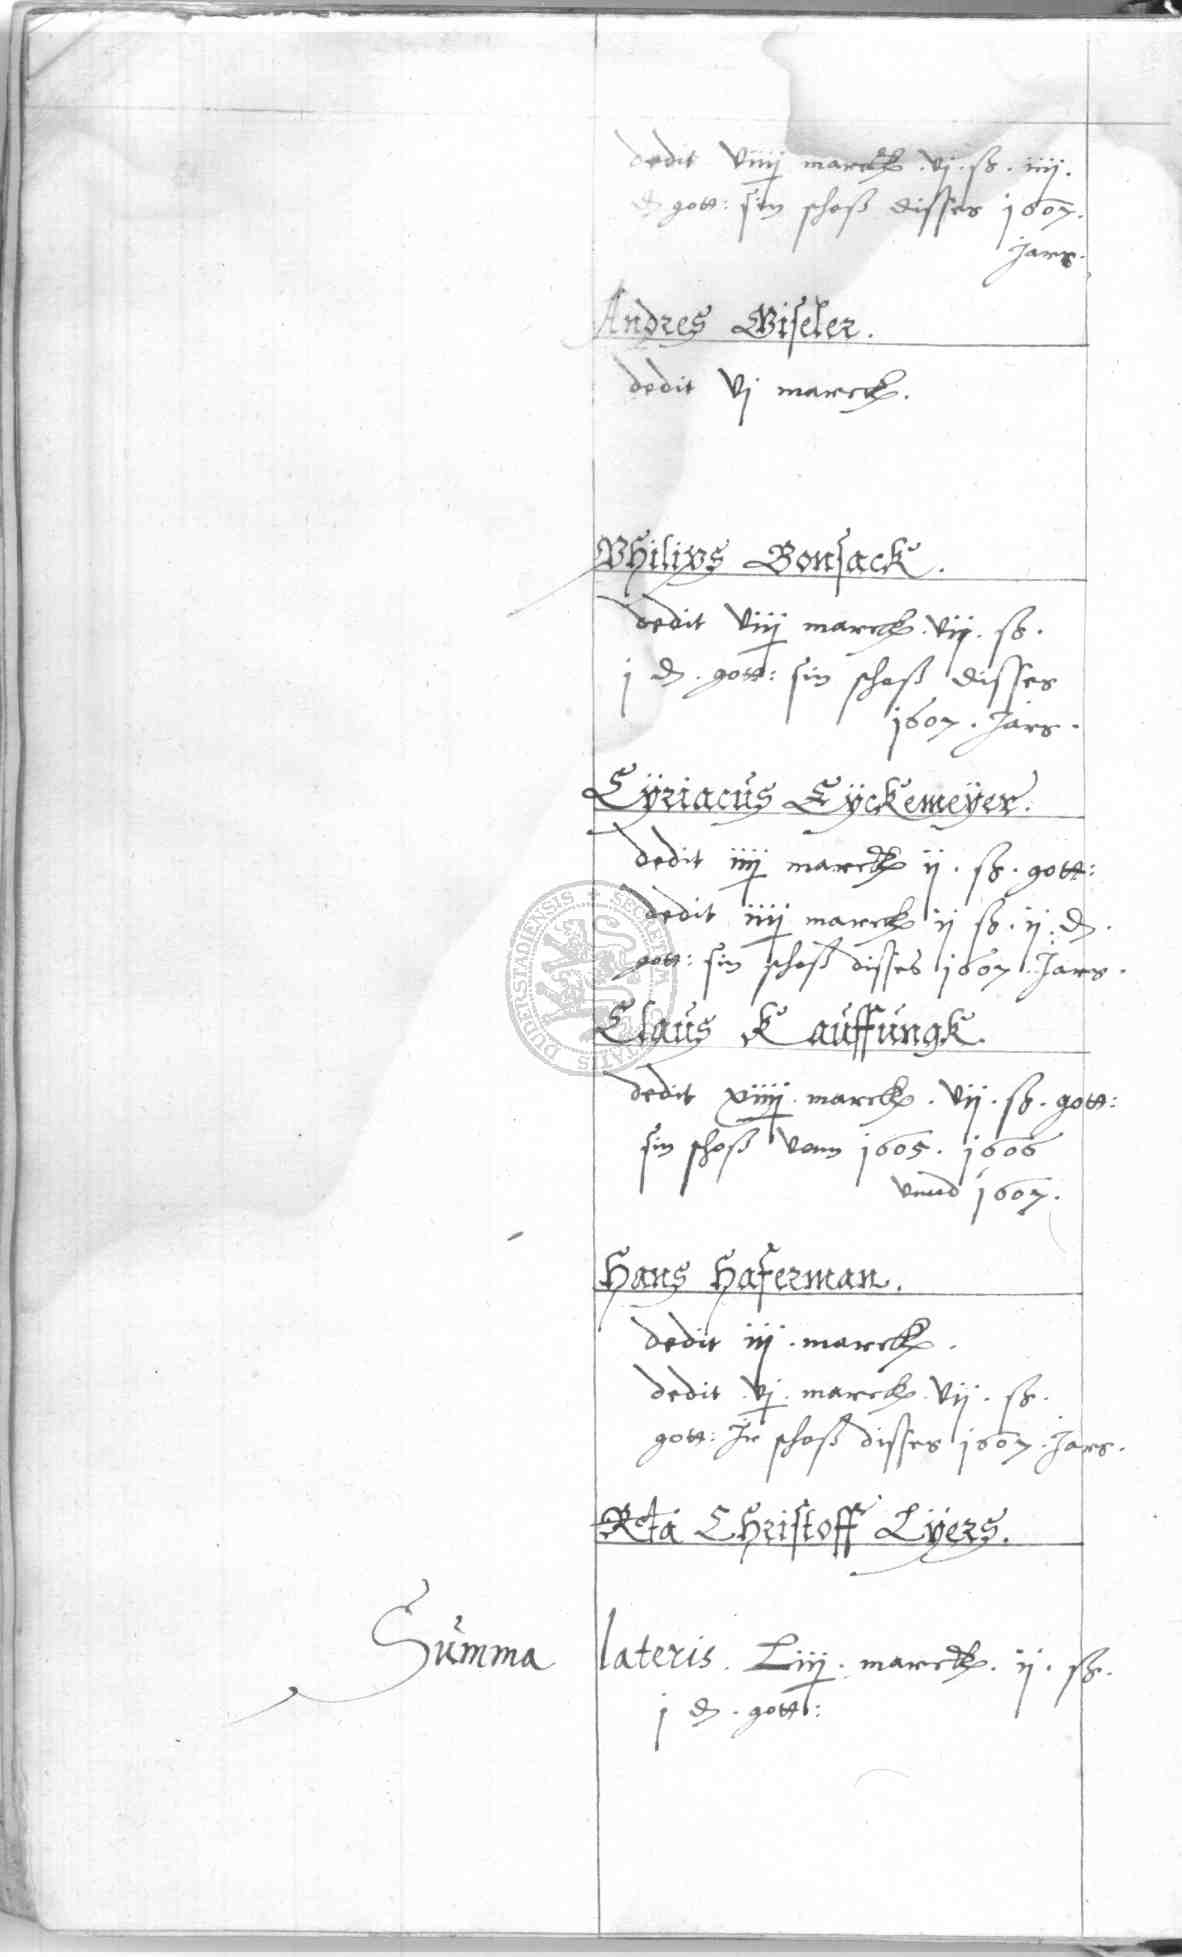 dedit viiij marck . vj . ß . iiij .
₰ gott: sin schoß disses 1607 .
Jars .
Andres Giseler .
dedit vj marck .
Philips Bonsack .
dedit viij marck . vij . ß .
j ₰ . gott: sin schoß disses
1607 . Jars .
Cÿriacus Eÿckemeÿer .
dedit iiij marck ij . ß . gott:
dedit iiij marck ij ß . ij . ₰ .
gott: sin schoß disses 1607 . Jars .
Claus Kauffungk .
dedit xiiij . marck . vij . ß . gott:
sin schoß vom 1605 . 1606
vnnd 1607 .
Hans Haferman .
dedit iij . marck .
dedit vj . marck . vij . ß .
gott: Jr schoß disses 1607 . Jars .
Rta Christoff Lÿers .
Summa lateris . Liij . marck . ij . ß .
j ₰ . gott:
SECRETUM CIVITATIS DUDERSTADIENSIS